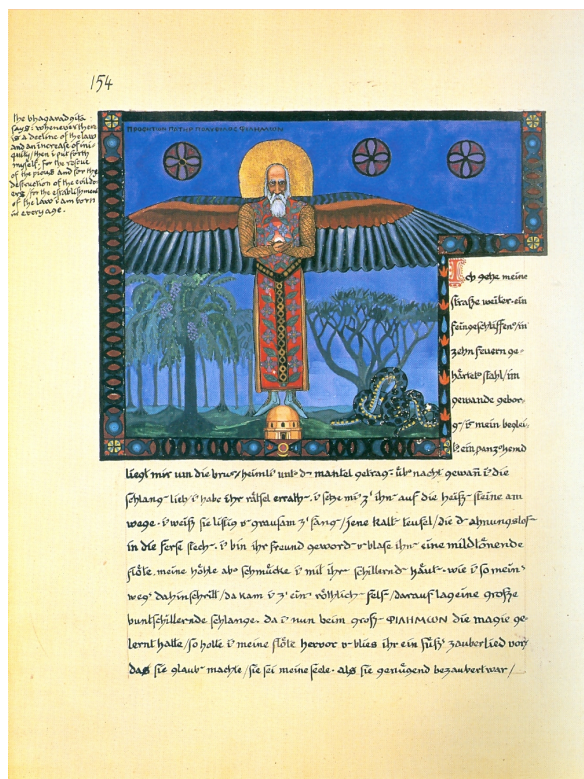 154
the bhagavadgita
says: whenever there
is a decline of the law
and an increase of ini-
quity / then i put forth
myself. for the rescue
of the pious and for the
destruction of the evildo-
ers / for the establishment
of the law i am born
in every age.
ΠΡΟΦΗΤΩΝ ΠΑΤΗΡ ΠΟΛΥΦΙΛΟΣ ΦΙΛΗΜΩΝ
Ich gehe meine
straße weiter · ein
feingeschliffen / in
zehn feuern ge-
härtet stahl / im
gewande gebor-
g / ist mein beglei-
ein panzerhemd
liegt mir um die brust / heimli unt d mantel getrag · üb nacht gewañ i die
schlang lieb i habe ihr rätsel errath · i setze mi z' ihn auf die heiß steine am
wege · i weiß sie listig v grausam z' fang / jene kalt teufel / die d ahnungslos
in die ferse stech · i bin ihr freund geword v blase ihn eine mildtönende
flöte · meine höhle ab schmücke i mit ihr schillernd häut · wie i so mein
weg dahinschritt / da kam i z' ein röthlich fels / darauf lag eine große
buntschillernde schlange · da i nun beim groß ΦΙΛΗΜΩΝ die magie ge-
lernt hatte / so holte i meine flöte hervor v blies ihr ein süß zauberlied vor
das sie glaub machte / sie sei meine seele · als sie genügend bezaubert war /